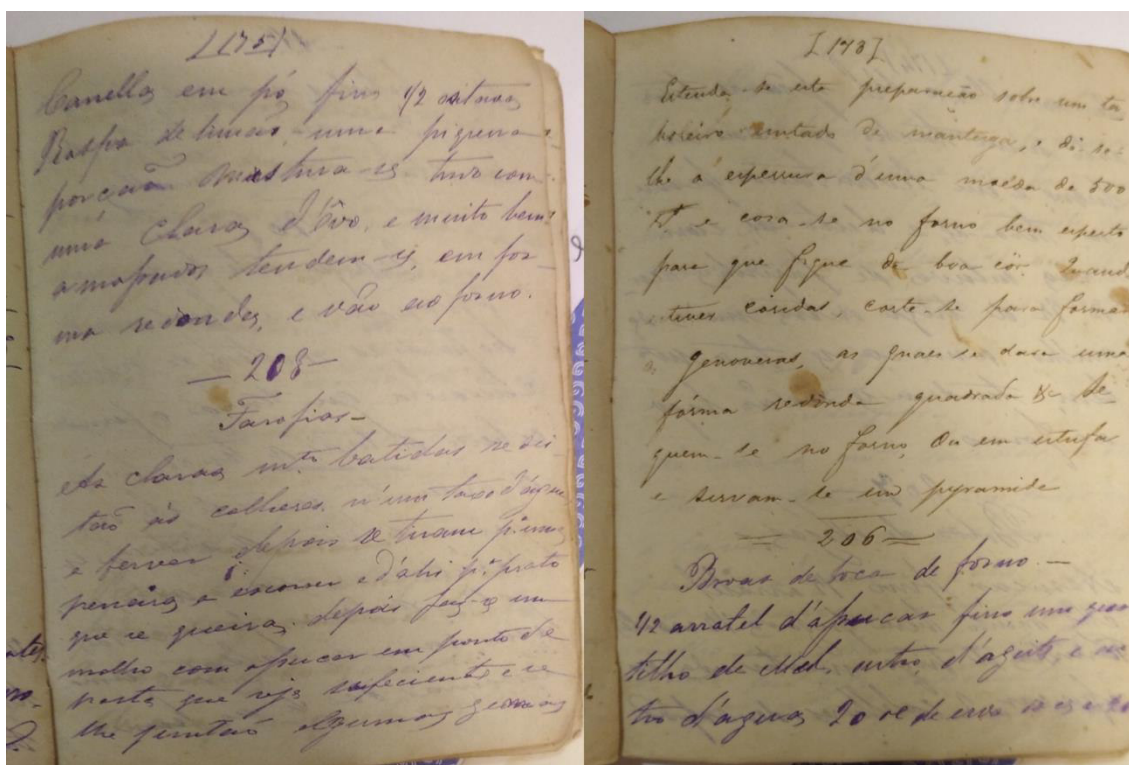 [175]
Canella em pó fino 1/2 oitava
Raspa de limão, uma piquena
porcaõ mistura-se tudo com
uma clara d'ôvo, e muito bem
amassados tendem-se, em for-
ma redondes, e vão ao forno.
— 208 —
Farofias —
As claras mto batidas se dei-
taõ ás colheres n'um taxo d'agua
a ferver depois se tiram pa uma
peneira a escorrer e d'ahi pa prato
que se queira, depois faz-se um
molho com assucar em ponto de
pasta que seja sufeciente e se
lhe juntaõ algumas gemas
[173]
Estenda-se esta preparação sobre um ta
boleiro untado de manteiga, e dê-se-
lhe a espessura d'uma moéda de 500
rs e cosa-se no forno bem esperto
para que fique de boa côr. Quand
estiver cosida, corte-se para formar
genovezas, as quaes se dara uma
fórma redonda quadrada &c Se
quem-se no forno, Ou em estufa
e sirvam-se em pyramide
— 206 —
Broas de boca de forno. —
1/2 arratel d'assucar fino, um quar
tilho de Mel, outro d'azeite, e ou
tro d'agua, 20 rs de erva